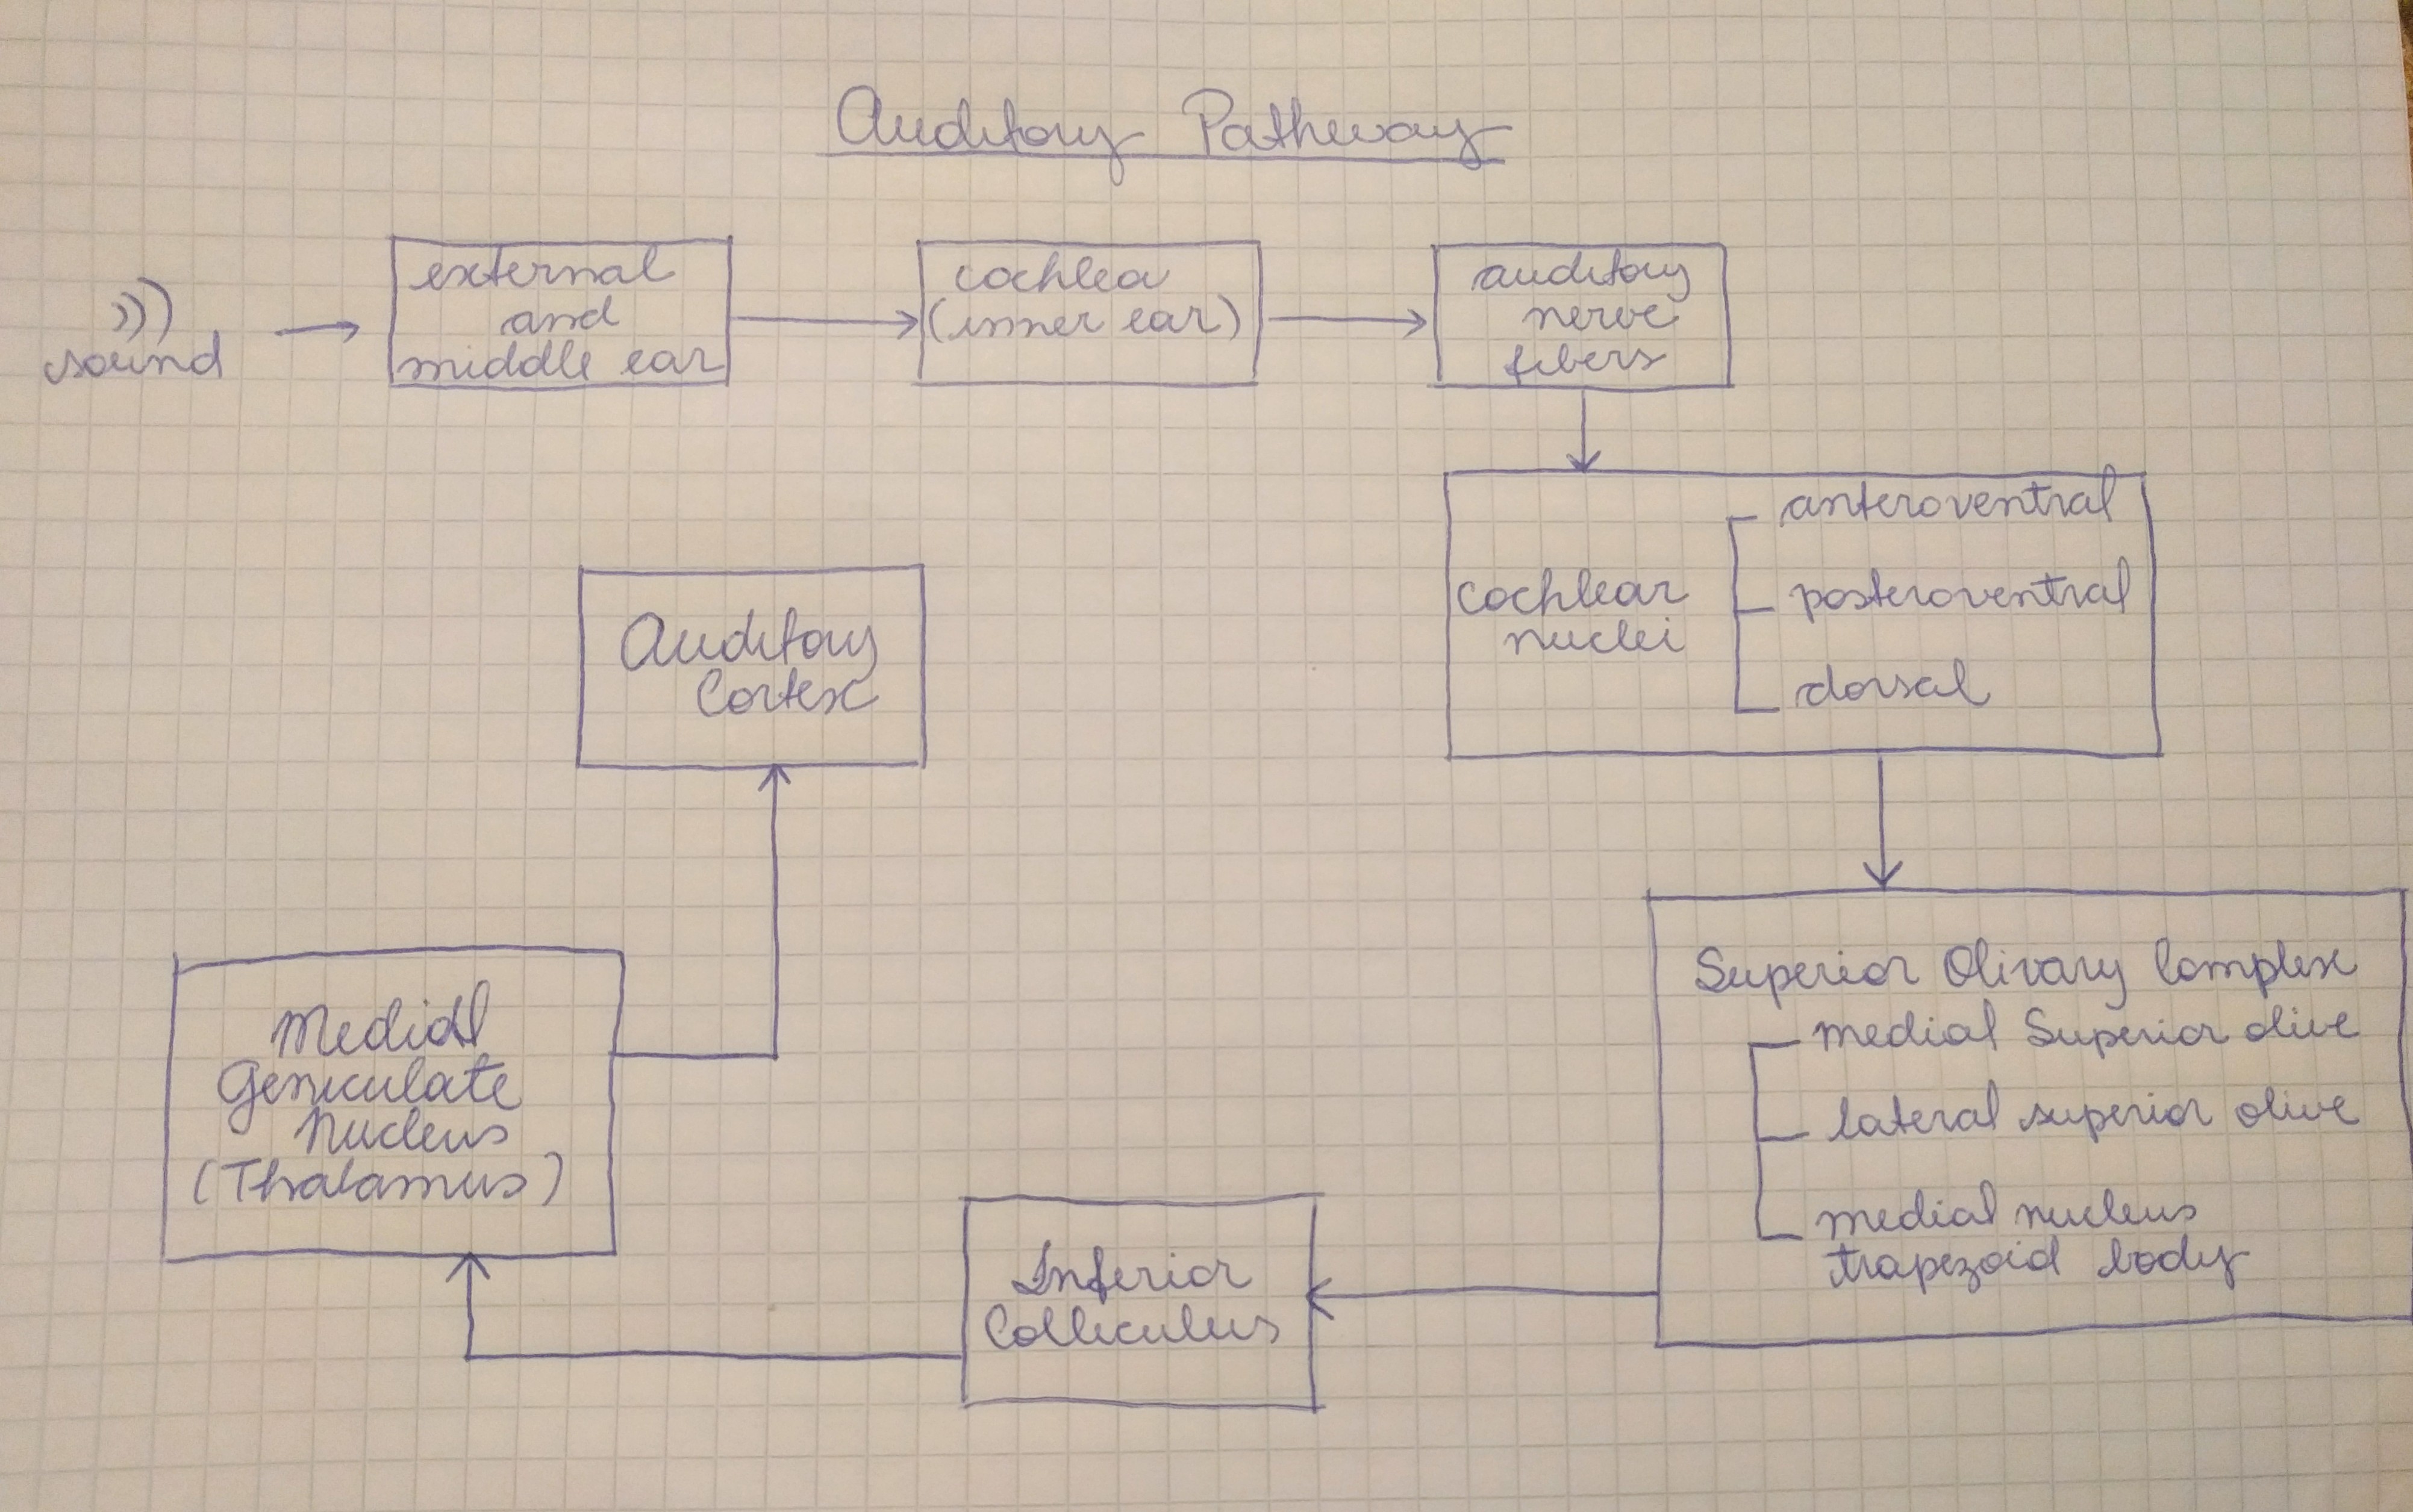 Auditory Pathway
sound
external
and
middle ear
cochlea
(inner ear)
auditory
nerve
fibers
cochlear
nuclei
anteroventral
posteroventral
dorsal
Superior Olivary Complex
medial Superior olive
lateral superior olive
medial nucleus
trapezoid body
Inferior
Colliculus
Medial
Geniculate
Nucleus
(Thalamus)
Auditory
Cortex